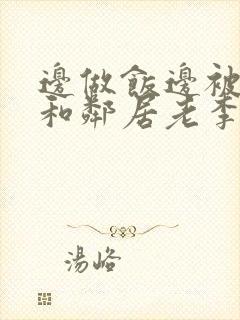 邊做飯邊被
和鄰居老李
湯峪